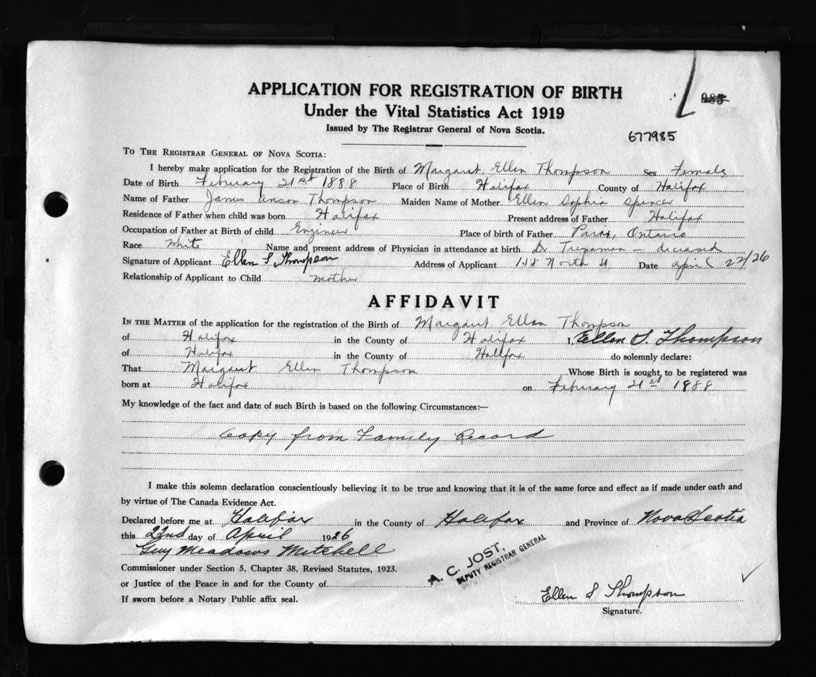 APPLICATION FOR REGISTRATION OF BIRTH
Under the Vital Statistics Act 1919
Issued by The Registrar General of Nova Scotia.
677985
TO THE REGISTRAR GENERAL OF NOVA SCOTIA:
I hereby make application for the Registration of the Birth of Margaret Ellen Thompson Sex Female
Date of Birth February 21st 1888 Place of Birth Halifax County of Halifax
Name of Father James Anson Thompson Maiden Name of Mother Ellen Sophia Spencer
Residence of Father when child was born Halifax Present address of Father Halifax
Occupation of Father at Birth of child Engineer Place of birth of Father Ontario
Race White Name and present address of Physician in attendance at birth Dr — deceased
Signature of Applicant Ellen S Thompson Address of Applicant North St Date April 22/26
Relationship of Applicant to Child mother
AFFIDAVIT
IN THE MATTER of the application for the registration of the Birth of Margaret Ellen Thompson
of Halifax in the County of Halifax I, Ellen S. Thompson
of Halifax in the County of Halifax do solemnly declare:
That Margaret Ellen Thompson Whose Birth is sought to be registered was
born at Halifax on February 21st 1888
My knowledge of the fact and date of such Birth is based on the following Circumstances:—
Copy from Family Record
I make this solemn declaration conscientiously believing it to be true and knowing that it is of the same force and effect as if made under oath and
by virtue of The Canada Evidence Act.
Declared before me at Halifax in the County of Halifax and Province of Nova Scotia
this 22nd day of April 1926
Guy Meadows Mitchell
Commissioner under Section 5, Chapter 38, Revised Statutes, 1923.
or Justice of the Peace in and for the County of
If sworn before a Notary Public affix seal.
A. C. JOST.
DEPUTY REGISTRAR GENERAL
Ellen S Thompson
Signature.